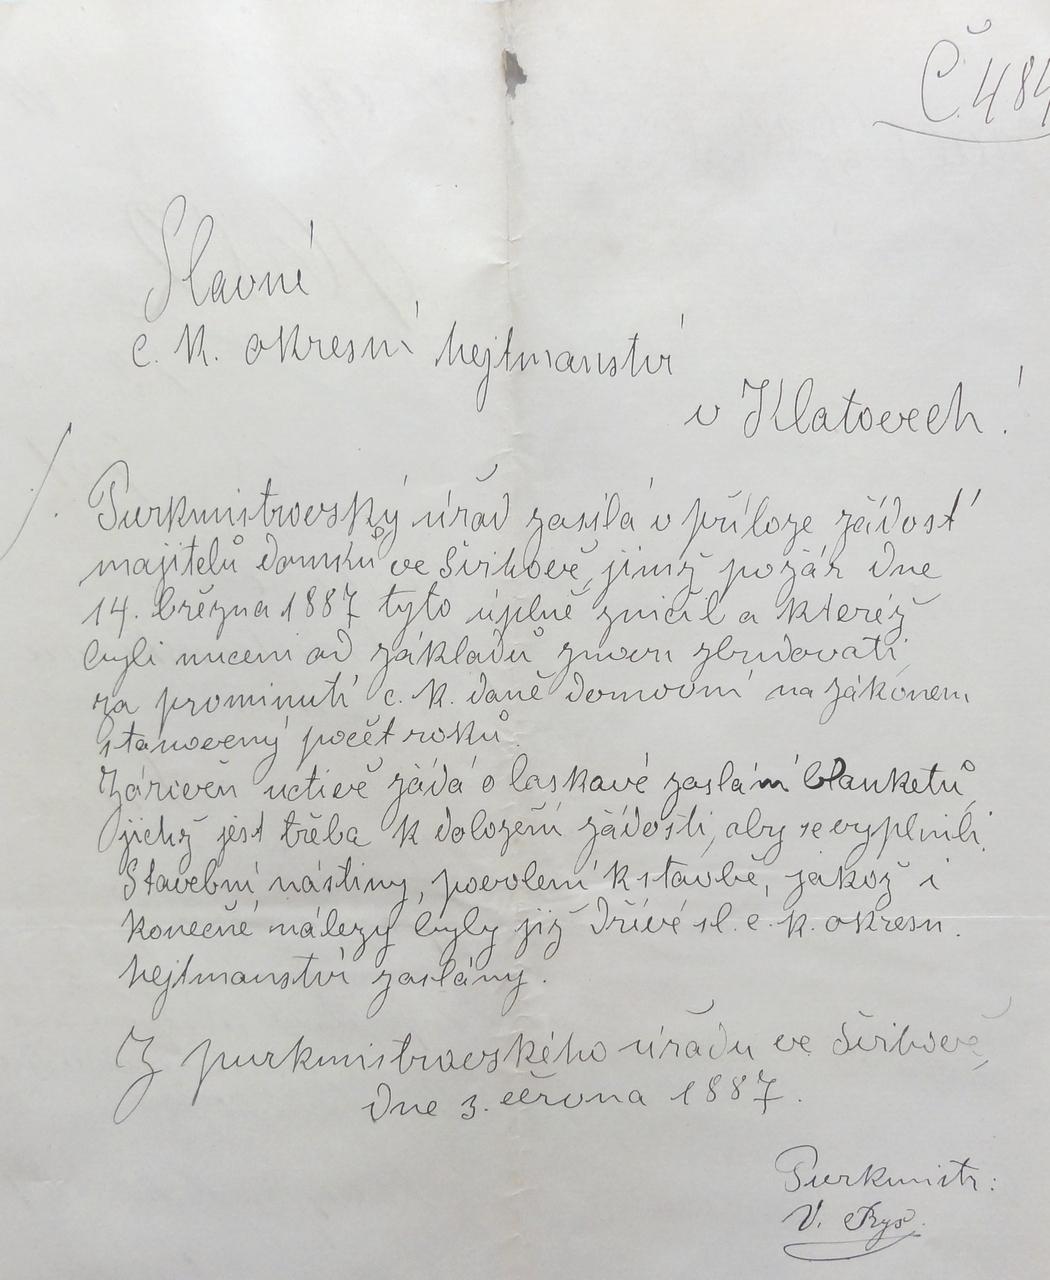 Č. 484
Slavné
c. k. okresní hejtmanství
v Klatovech!
Purkmistrovský úřad zasílá v příloze žádost
majitelů domků ve Švihově, jimž požár dne
14. března 1887 tyto úplně zničil a kteréž
byli nuceni od základů znovu zbudovati,
za prominutí c. k. daně domovní na zákonem
stanovený počet roků.
Zároveň uctivě žádá o laskavé zaslání blanketů,
jichž jest třeba k doložení žádosti, aby se vyplnili.
Stavební nástiny, povolení k stavbě, jakož i
konečné nálezy byly již dřívé sl. c. k. okresn.
hejtmanství zaslány.
Z purkmistrovského úřadu ve Švihově,
dne 3. června 1887.
Purkmistr:
V.